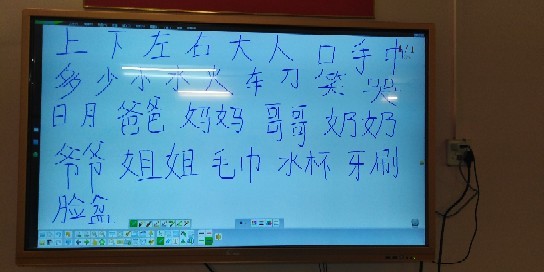 上 下 左 右 大 人 口 手 巾
多 少 小 水 火 车 刀 笑 哭
日 月 爸爸 妈妈 哥哥 奶奶
爷爷 姐姐 毛巾 水杯 牙刷
脸盆